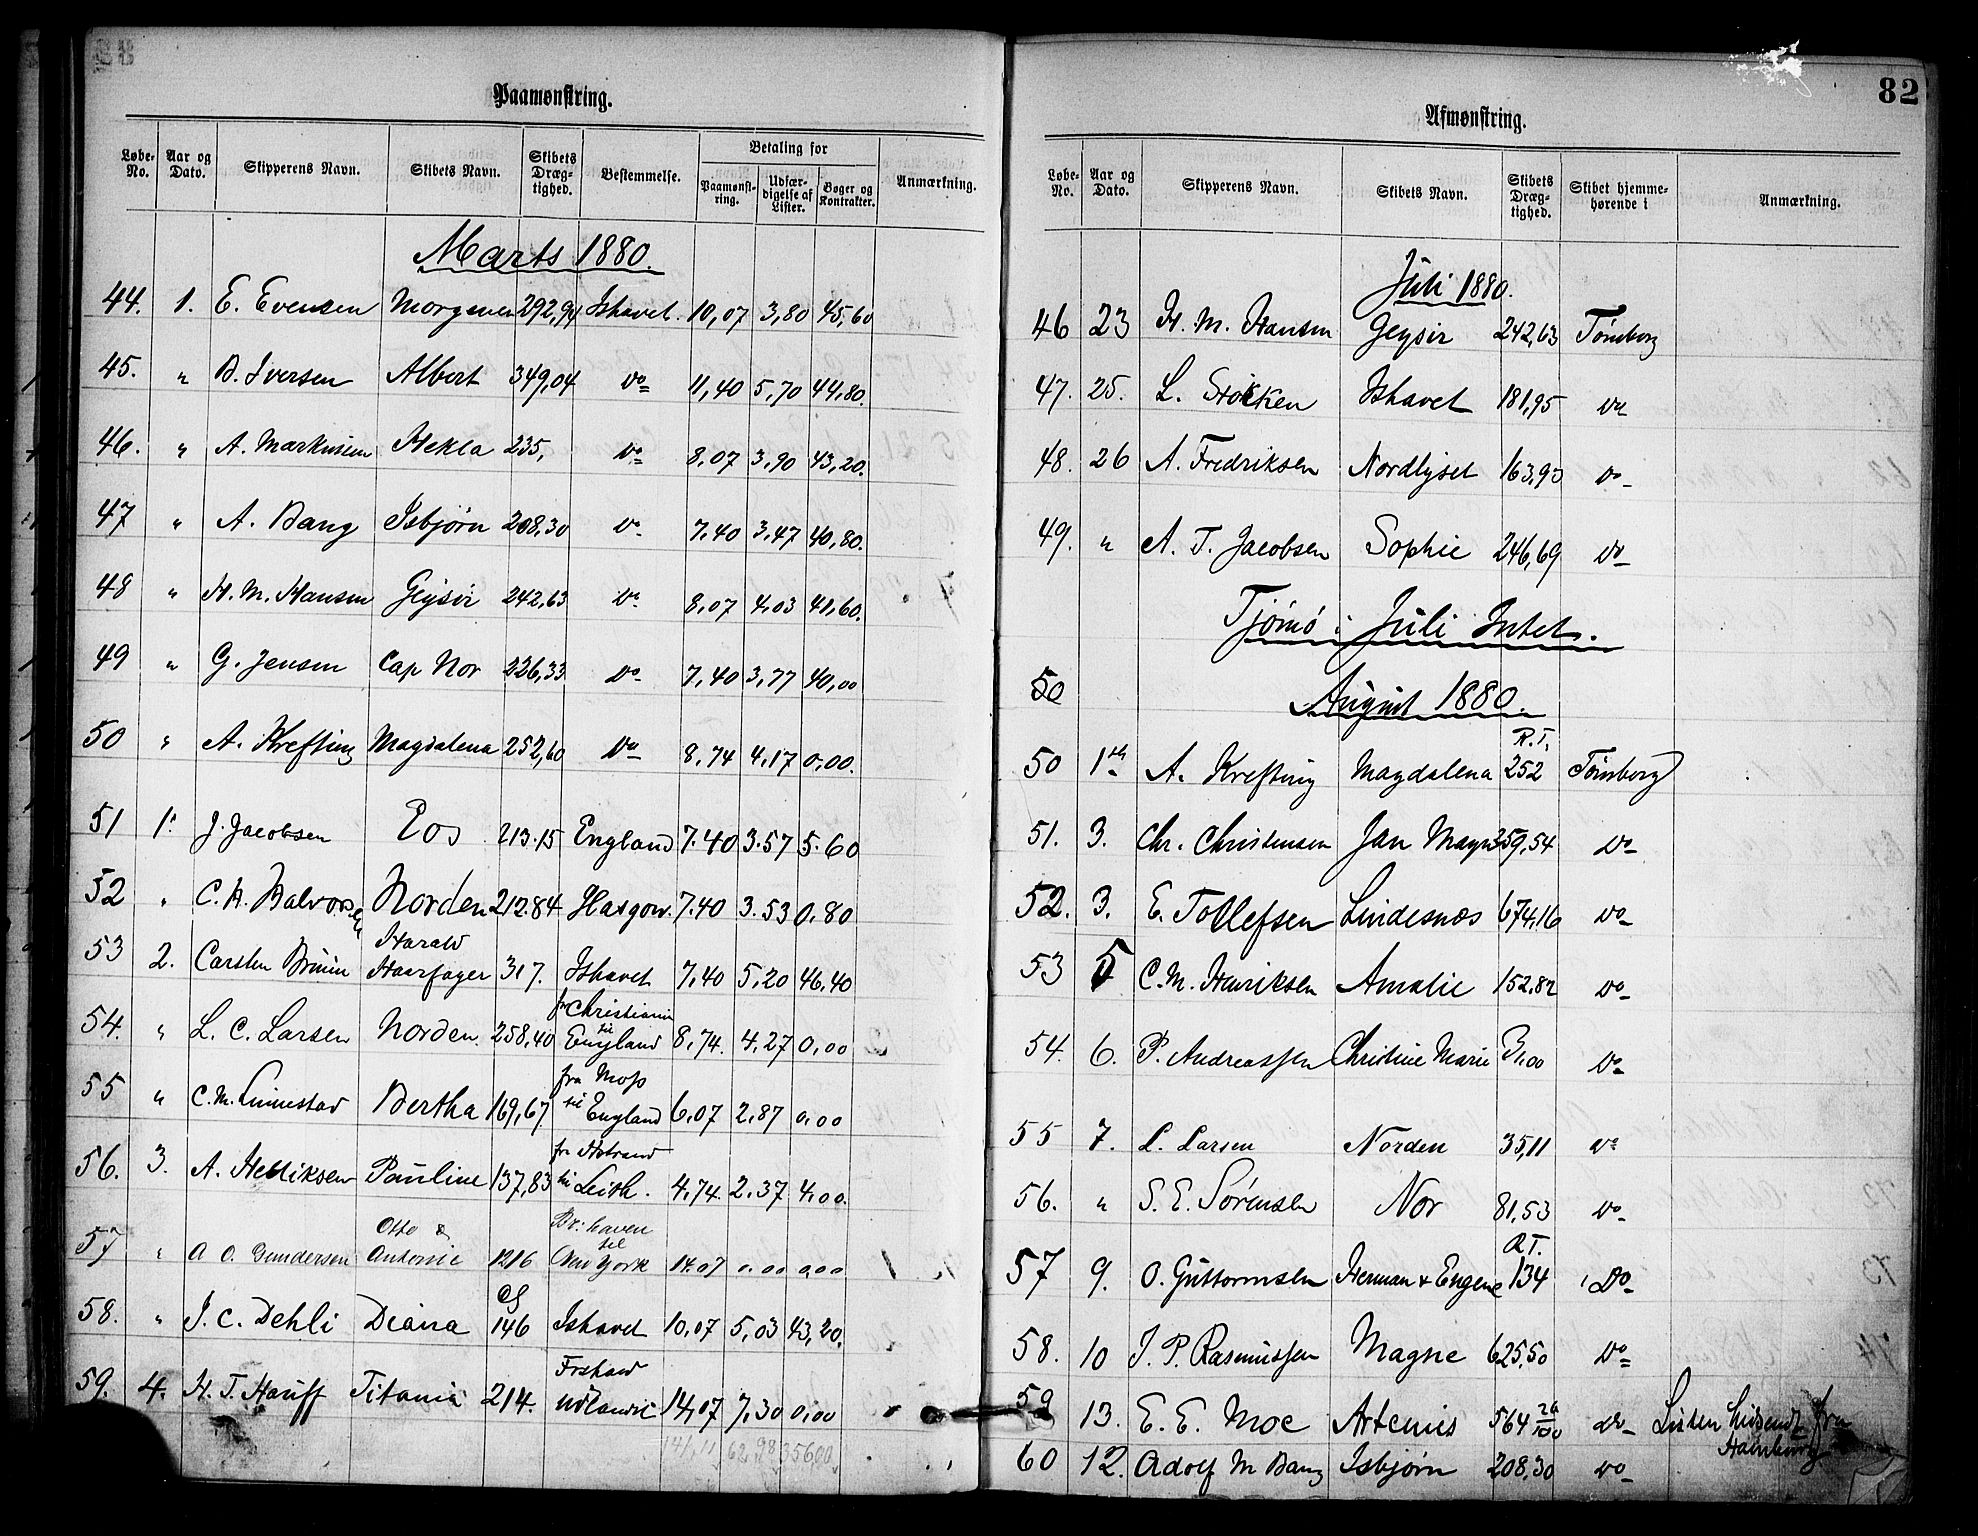 82
Paamønstring.
Løbe-No. Aar og Dato. Skipperens Navn. Skibets Navn. Skibets Dræg-tighed. Bestemmelse. Betaling for Paamønst-ring. Udfær-digelse af Lister. Bøger og Kontrakter. Anmærkning.
Marts 1880.
44. 1. E. Evensen Morgenen 292,94 Ishavet. 10,07 3,80 45,60
45. " B. Iversen Albert 349,04 Do 11,40 5,70 44,80.
46. " A. Markussen Hekla 235, Do 8,07 3,90 43,20.
47 " A. Bang Isbjørn 208,30 Do 7,40 3,47 40,80.
48 " H. M. Hansen Geysir 242,63 Do 8,07 4,03 41,60.
49 " G. Jensen Cap Nor 226,33 Do 7,40 3,77 40,00
50 " A. Krefting Magdalena 252,60 Do 8,74 4,17 0,00.
51 1. J. Jacobsen Eos 213.15 England 7.40 3.57 5.60
52 " C. A. Halvorsen Norden 212.84 Glasgow. 7.40 3.53 0.80
53 2. Carsten Bruun Harald Haarfager 317. Ishavet 7,40 5,20 46,40
54. " L. C. Larsen Norden 258,40 fr Christiania til England 8,74. 4,27 0,00
55 " C. M. Linnestad Bertha 169,67 fra Moss til England 6,07 2,87 0,00
56. 3. A. Hendriksen Pauline 137,83 fr Hstrand til Leith. 4,74. 2,37 4,00.
57 " A O. Gundersen Otto & Antonie 1216 Br: haven til New York 14.07 0.00 0,00
58. " J. C. Dehli Diana 146 Ishavet 10,07 5,03 43,20.
59. 4. H. T. Hauff Titania 214. Frehald udlandet 14,07 7,30 0,00
141,11 62,98 356,00
Afmønstring.
Løbe-No. Aar og Dato. Skipperens Navn. Skibets Navn. Skibets Dræg-tighed. Skibet hjemme-hørende i Anmærkning.
Juli 1880.
46 23 H. M. Hansen Geysir 242,63 Tønsberg
47. 25. L. Stokken Ishavet 181,95 Do
48. 26 A. Fredriksen Nordlyset 163,93 Do
49. " A. T. Jacobsen Sophie 246,69 Do
Tjømø i Juli Intet.
50
August 1880.
50 1ste A. Krefting Magdalena R. T. 252 Tønsberg
51. 3. Chr. Christensen Jan Mayn 359,54 Do
52. 3. E. Tollefsen Lindesnæs 674,16 Do
53 5 C. M. Henriksen Amalie 152,82 Do
54. 6. P. Andreassen Christine Marie 31,00 Do
55 7. L. Larsen Norden 35,11 Do
56. " S. E. Sørensen Nor 81,53 Do
57 9. O. Guttormsen Herman & Eugene R T. 134 Do
58. 10 J. P. Rasmussen Magne 625,50 Do
59 13. E. E. Moe Artemis 564 26/100 Do Listen indsendt fra Hamburg
60 12. Adolf M Bang Isbjørn 208,30 Do